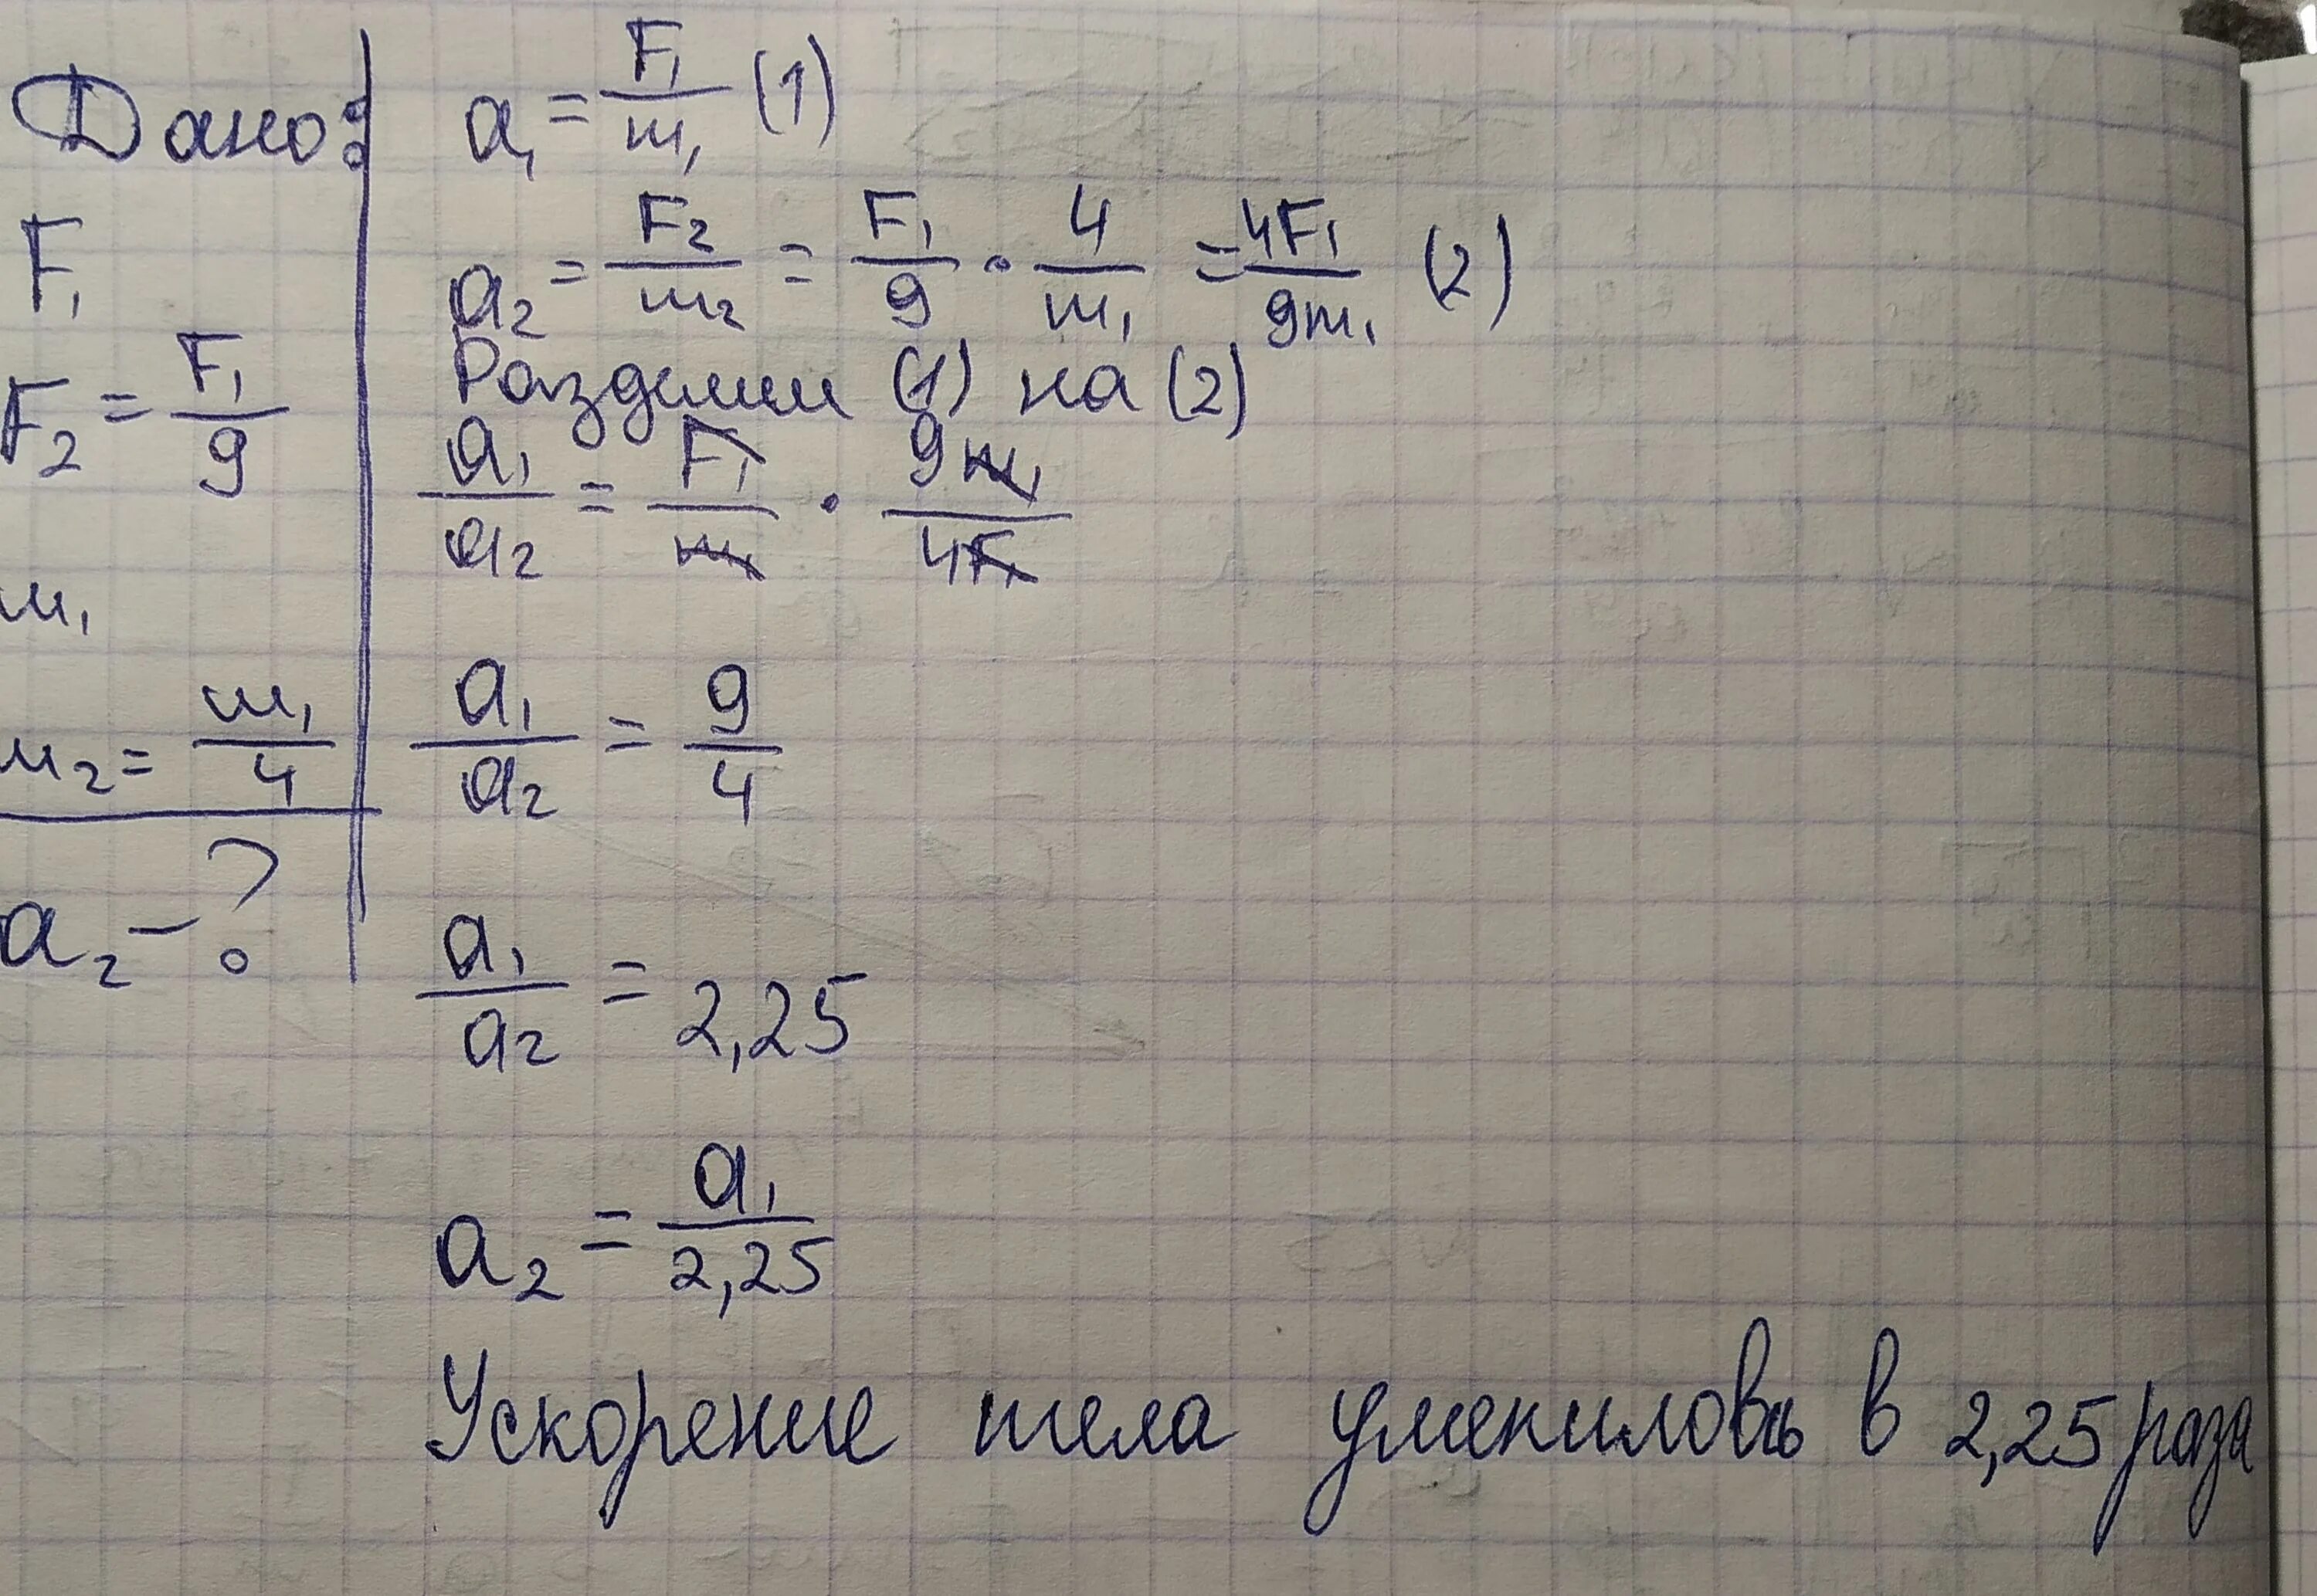 Дано:
F₁
F₂ = F₁/9
m₁
m₂ = m₁/4
a₂ - ?
a₁ = F₁/m₁ (1)
a₂ = F₂/m₂ = F₁/9 · 4/m₁ = 4F₁/9m₁ (2)
Разделим (1) на (2)
a₁/a₂ = F₁/m₁ · 9m₁/4F₁
a₁/a₂ = 9/4
a₁/a₂ = 2,25
a₂ = a₁/2,25
Ускорение тела уменшиловь в 2,25 раза